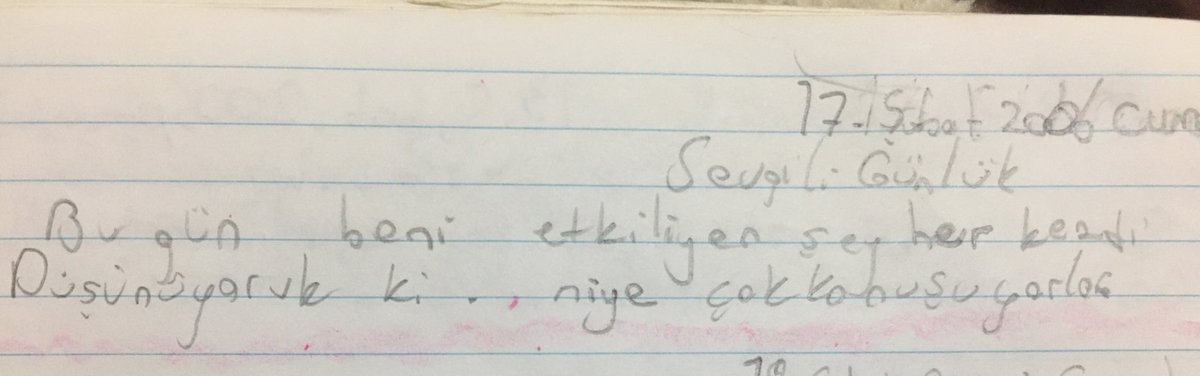 17. Şubat 2006 Cum
Sevgili Günlük
Bu gün beni etkiliyen şey her kezdi
Düşünüyoruk ki .. niye çok konuşuyorlar